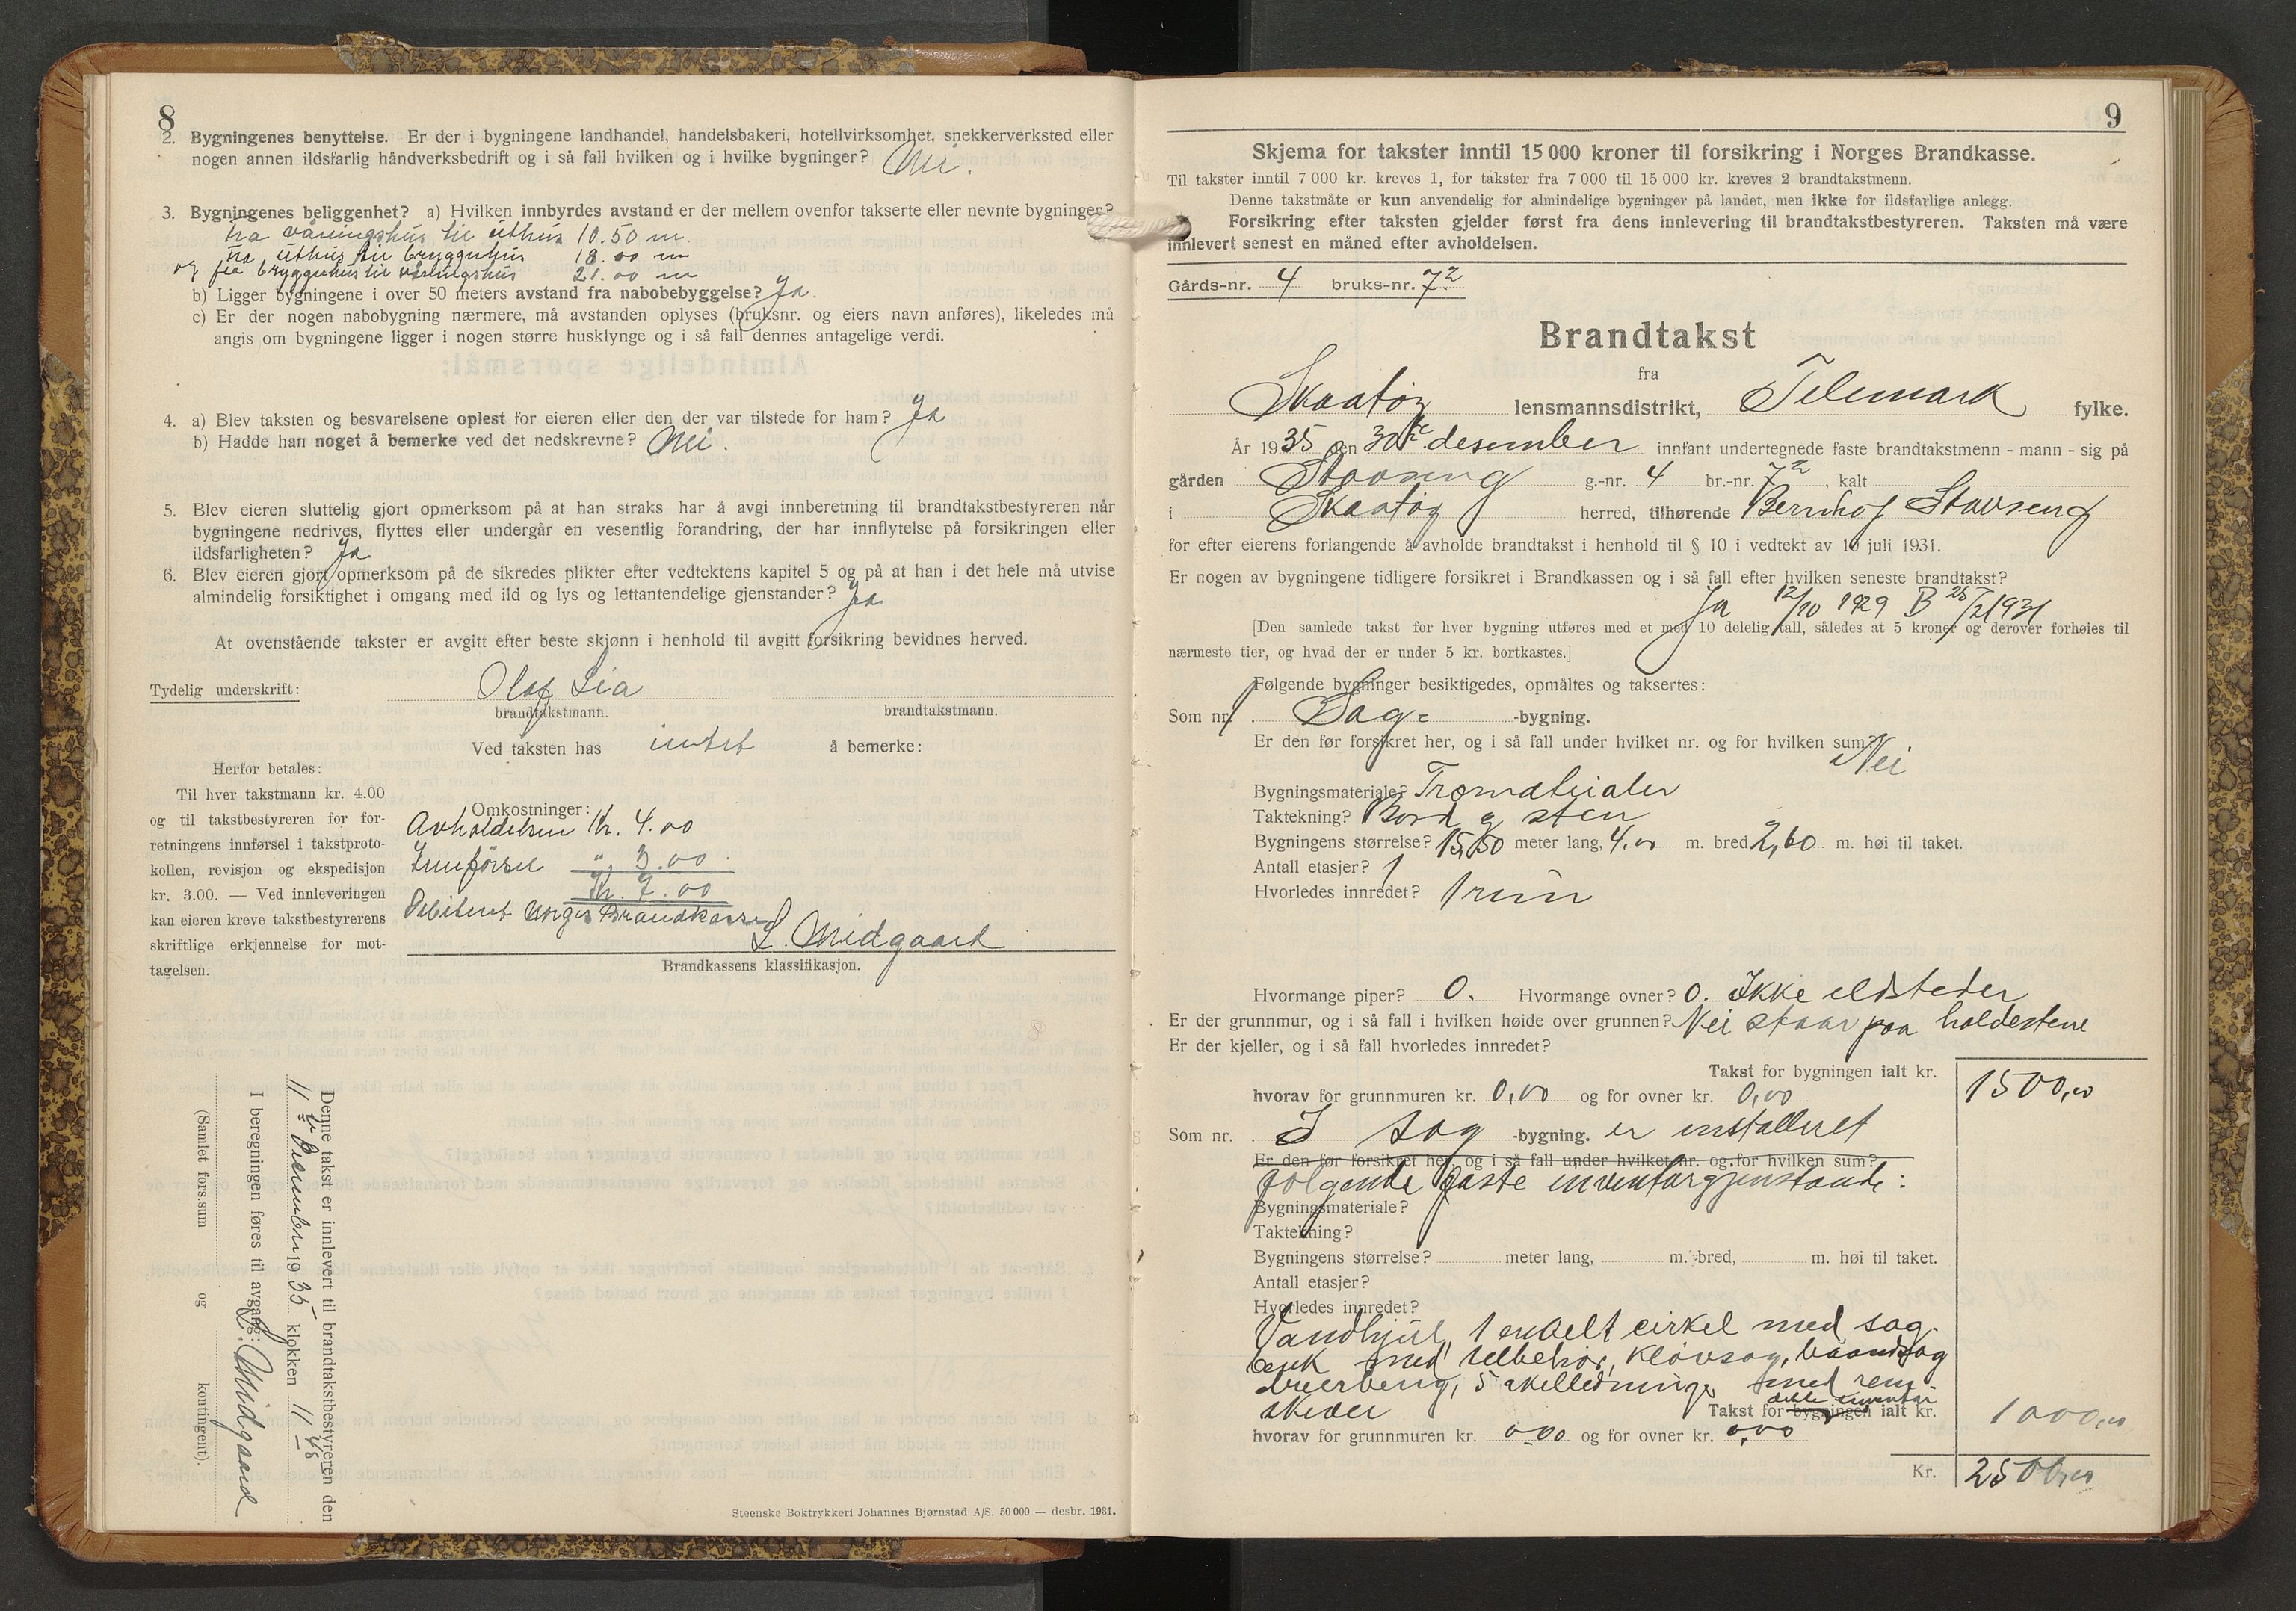 8
2. Bygningenes benyttelse. Er der i bygningene landhandel, handelsbakeri, hotellvirksomhet, snekkerverksted eller
nogen annen ildsfarlig håndverksbedrift og i så fall hvilken og i hvilke bygninger? Nei.
3. Bygningenes beliggenhet? a) Hvilken innbyrdes avstand er der mellem ovenfor takserte eller nevnte bygninger?
fra våningshus til uthus 10.50 m.
fra uthus til bryggerhus 18.00 m
og fra bryggerhus til våningshus 21.00 m
b) Ligger bygningene i over 50 meters avstand fra nabobebyggelse? Ja.
c) Er der nogen nabobygning nærmere, må avstanden oplyses (bruksnr. og eiers navn anføres), likeledes må
angis om bygningene ligger i nogen større husklynge og i så fall dennes antagelige verdi.
4. a) Blev taksten og besvarelsene oplest for eieren eller den der var tilstede for ham? Ja
b) Hadde han noget å bemerke ved det nedskrevne? Nei.
5. Blev eieren sluttelig gjort opmerksom på at han straks har å avgi innberetning til brandtakstbestyreren når
bygningene nedrives, flyttes eller undergår en vesentlig forandring, der har innflytelse på forsikringen eller
ildsfarligheten? Ja
6. Blev eieren gjort opmerksom på de sikredes plikter efter vedtektens kapitel 5 og på at han i det hele må utvise
almindelig forsiktighet i omgang med ild og lys og lettantendelige gjenstander? Ja
At ovenstående takster er avgitt efter beste skjønn i henhold til avgitt forsikring bevidnes herved.
Tydelig underskrift: Olaf Lia
brandtakstmann. brandtakstmann.
Ved taksten has intet å bemerke:
Herfor betales:
Til hver takstmann kr. 4.00
og til takstbestyreren for for-
retningens innførsel i takstproto-
kollen, revisjon og ekspedisjon
kr. 3.00. — Ved innleveringen
kan eieren kreve takstbestyrerens
skriftlige erkjennelse for mot-
tagelsen.
Omkostninger:
Avholdelsen Kr. 4.00
Innførsel " 3.00
Kr. 7.00
Debitert Norges Brandkasse
L. Midgaard
Brandkassens klassifikasjon.
Denne takst er innlevert til brandtakstbestyreren den
11te Desember 1935 klokken 11
I beregningen føres til avgang: L. Midgaard
(Samlet fors.sum og kontingent).
Steenske Boktrykkeri Johannes Bjørnstad A/S. 50 000 — desbr. 1931.
9
Skjema for takster inntil 15 000 kroner til forsikring i Norges Brandkasse.
Til takster inntil 7 000 kr. kreves 1, for takster fra 7 000 til 15 000 kr. kreves 2 brandtakstmenn.
Denne takstmåte er kun anvendelig for almindelige bygninger på landet, men ikke for ildsfarlige anlegg.
Forsikring efter taksten gjelder først fra dens innlevering til brandtakstbestyreren. Taksten må være
innlevert senest en måned efter avholdelsen.
Gårds-nr. 4 bruks-nr. 72
Brandtakst
fra
Skaatøy lensmannsdistrikt, Telemark fylke.
År 1935 den 30te desember innfant undertegnede faste brandtakstmenn - mann - sig på
gården Stavseng g.-nr. 4 br.-nr. 72, kalt
i Skaatøy herred, tilhørende Bernhof Stavseng
for efter eierens forlangende å avholde brandtakst i henhold til § 10 i vedtekt av 10 juli 1931.
Er nogen av bygningene tidligere forsikret i Brandkassen og i så fall efter hvilken seneste brandtakst?
Ja 12/10 1929 B 25/2 1931
[Den samlede takst for hver bygning utføres med et med 10 delelig tall, således at 5 kroner og derover forhøies til
nærmeste tier, og hvad der er under 5 kr. bortkastes.]
Følgende bygninger besiktigedes, opmåltes og taksertes:
Som nr. 1. Sag- -bygning.
Er den før forsikret her, og i så fall under hvilket nr. og for hvilken sum? Nei
Bygningsmateriale? Trematerialer
Taktekning? Bord og sten
Bygningens størrelse? 15,50 meter lang, 4.00 m. bred 2,60 m. høi til taket.
Antall etasjer? 1
Hvorledes innredet? 1 rum
Hvormange piper? 0. Hvormange ovner? 0. Ikke ildsteder
Er der grunnmur, og i så fall i hvilken høide over grunnen? Nei staar paa holdestene
Er der kjeller, og i så fall hvorledes innredet?
Takst for bygningen ialt kr. 1500,00
hvorav for grunnmuren kr. 0,00 og for ovner kr. 0,00
Som nr. I sag -bygning. er installeret
Er den før forsikret her, og i så fall under hvilket nr. og for hvilken sum?
følgende faste inventargjenstande:
Bygningsmateriale?
Taktekning?
Bygningens størrelse? meter lang, m. bred, m. høi til taket.
Antall etasjer?
Hvorledes innredet?
Vandhjul, 1 enkelt cirkel med sag-
benk med tilbehør, kløvsag, baandsag
dreierbenk, 5 akelledninge med rem-
skiver
dette inventar
Takst for bygningen ialt kr. 1000,00
hvorav for grunnmuren kr. 0,00 og for ovner kr. 0,00
Kr. 2500,00